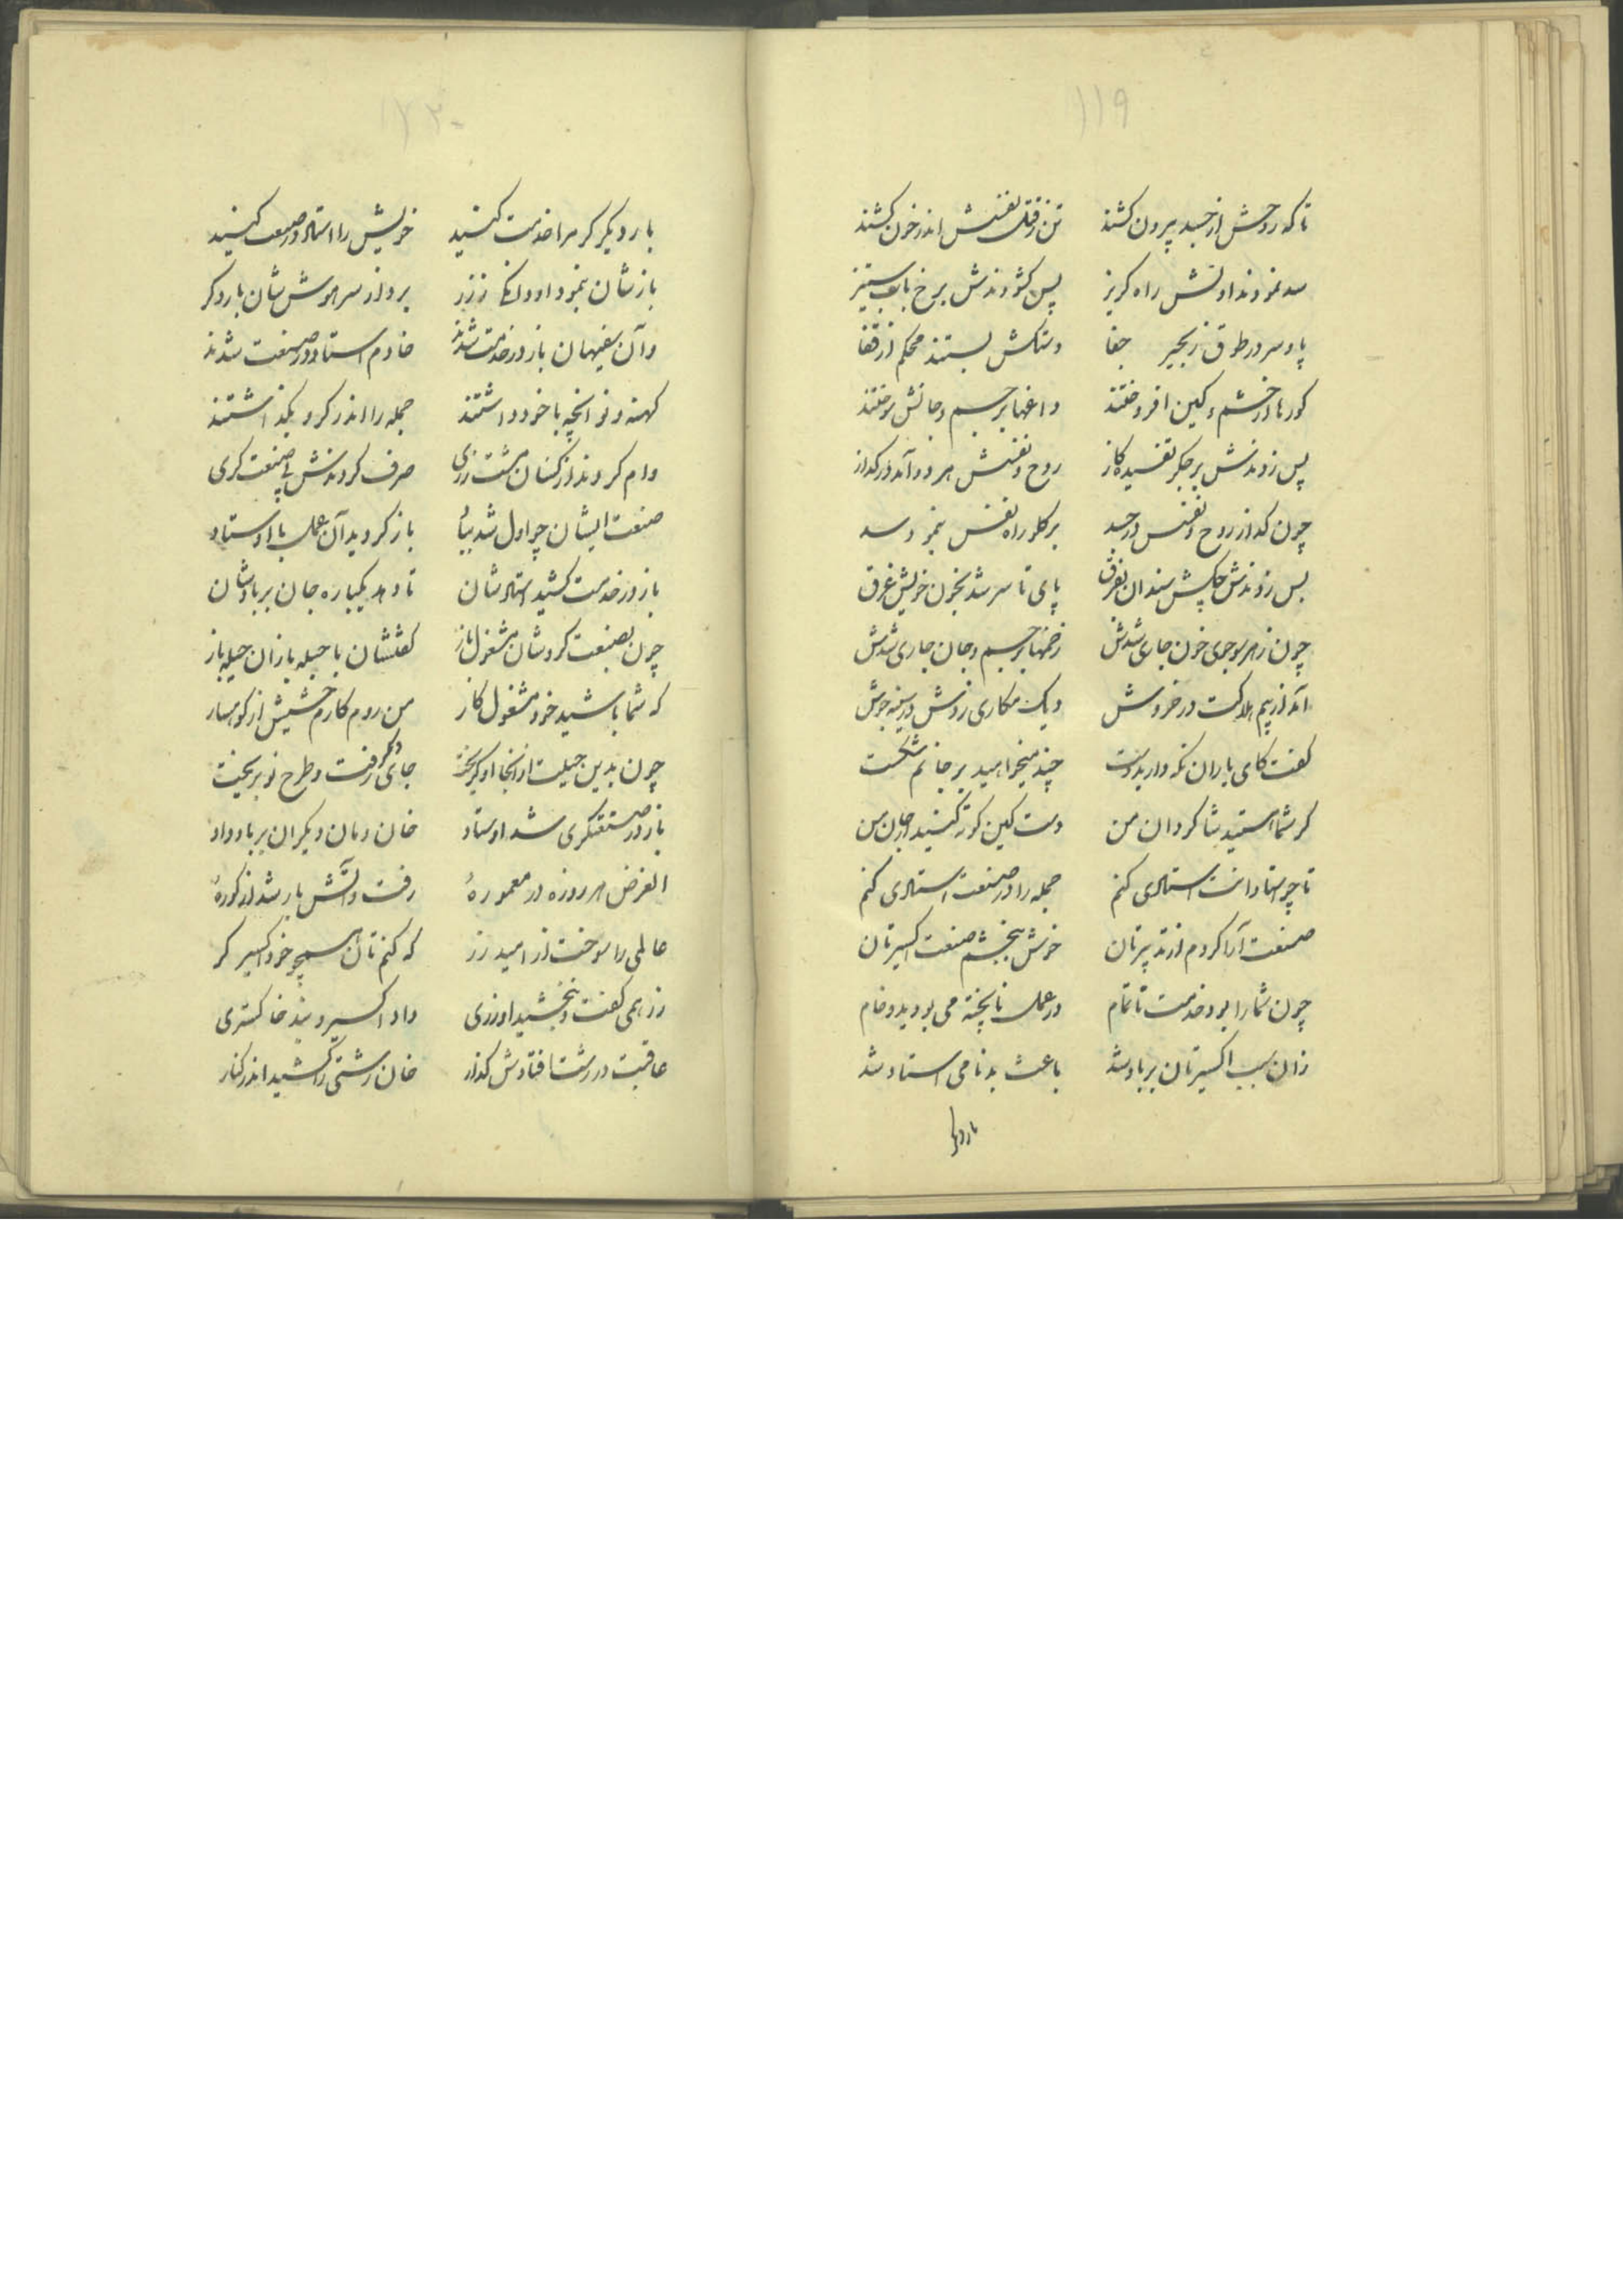 ۱۱۹
تا که روحش از جسد بیرون کشند تن ز قتل نفسش اندر خون کشند
سد نمودند اولش راه کریز پس کشودندش برخ باب ستیز
پا و سر در طوق زنجیر جفا دستکش بستند محکم از قفا
کورها از خشم و کین افروختند داغها بر جسم و جانش سوختند
پس زدندش بر جکر تفسیده کاز روح و نفسش هر دو آمد در کداز
چون کداز روح و نفس در جسد بر کلو راه نفس بنمود سد
پس زدندش چکش سندان بفرق پای تا سر شد بخون خویش غرق
چون ز هر سو جوی خون جاری شدش زخمها بر جسم و جان جاری شدش
آمد از بیم هلاکت در خروش دیک مکاری زدش در سینه جوش
کفت کای یاران نکه دارید دست چند میخواهید بر جانم شکست
کر شما هستید شاکردان من دست کین کوته کنید از جان من
تا چو استادانت استادی کنم جمله را در صنعت استادی کنم
صنعت آرا کردم از تدبیرتان خوش ببخشم صنعت اکسیرتان
چون شما را بود خدمت ناتمام در عمل ناپخته می بودید و خام
زان سبب اکسیرتان بر باد شد باعث بدنامی استاد شد
بار دیکر
۱۲۰
بار دیکر کر مرا خدمت کنید خویش را استاد در صنعت کنید
بازشان بنمود او زر برد از سر هوش شان بار دکر
وآن سفیهان باز در خدمت شدند خادم استاد در صنعت شدند
کهنه و نو آنچه با خود داشتند جمله را اندر کرو بکذاشتند
وام کردند از کسان مشت زری صرف کردندش پی صنعت کری
صنعت ایشان چو اول شد بباد باز کردید آن عمل با اوستاد
باز در خدمت کشید استادشان تا دهد یکباره جان بر بادشان
چون بصنعت کردشان مشغول باز کفتشان با حیله باز آن حیله باز
که شما باشید خود مشغول کار من روم کارم حشیش از کوهسار
چون بدین حیلت از آنجا او کریخت جای دکر رفت و طرح نو بریخت
باز در صنعتکری شد اوستاد خان و مان دیکران بر باد داد
الغرض هر روزه در معموره رفت و آتش بار شد از کوره
عالمی را سوخت از امید زر که کنم تان همچو خود اکسیر کر
زر همی کفت و نبخشید او زری داد اکسیر و بد خاکستری
عاقبت در رشت افتادش کذار خان رشتی را کشید اندر کنار